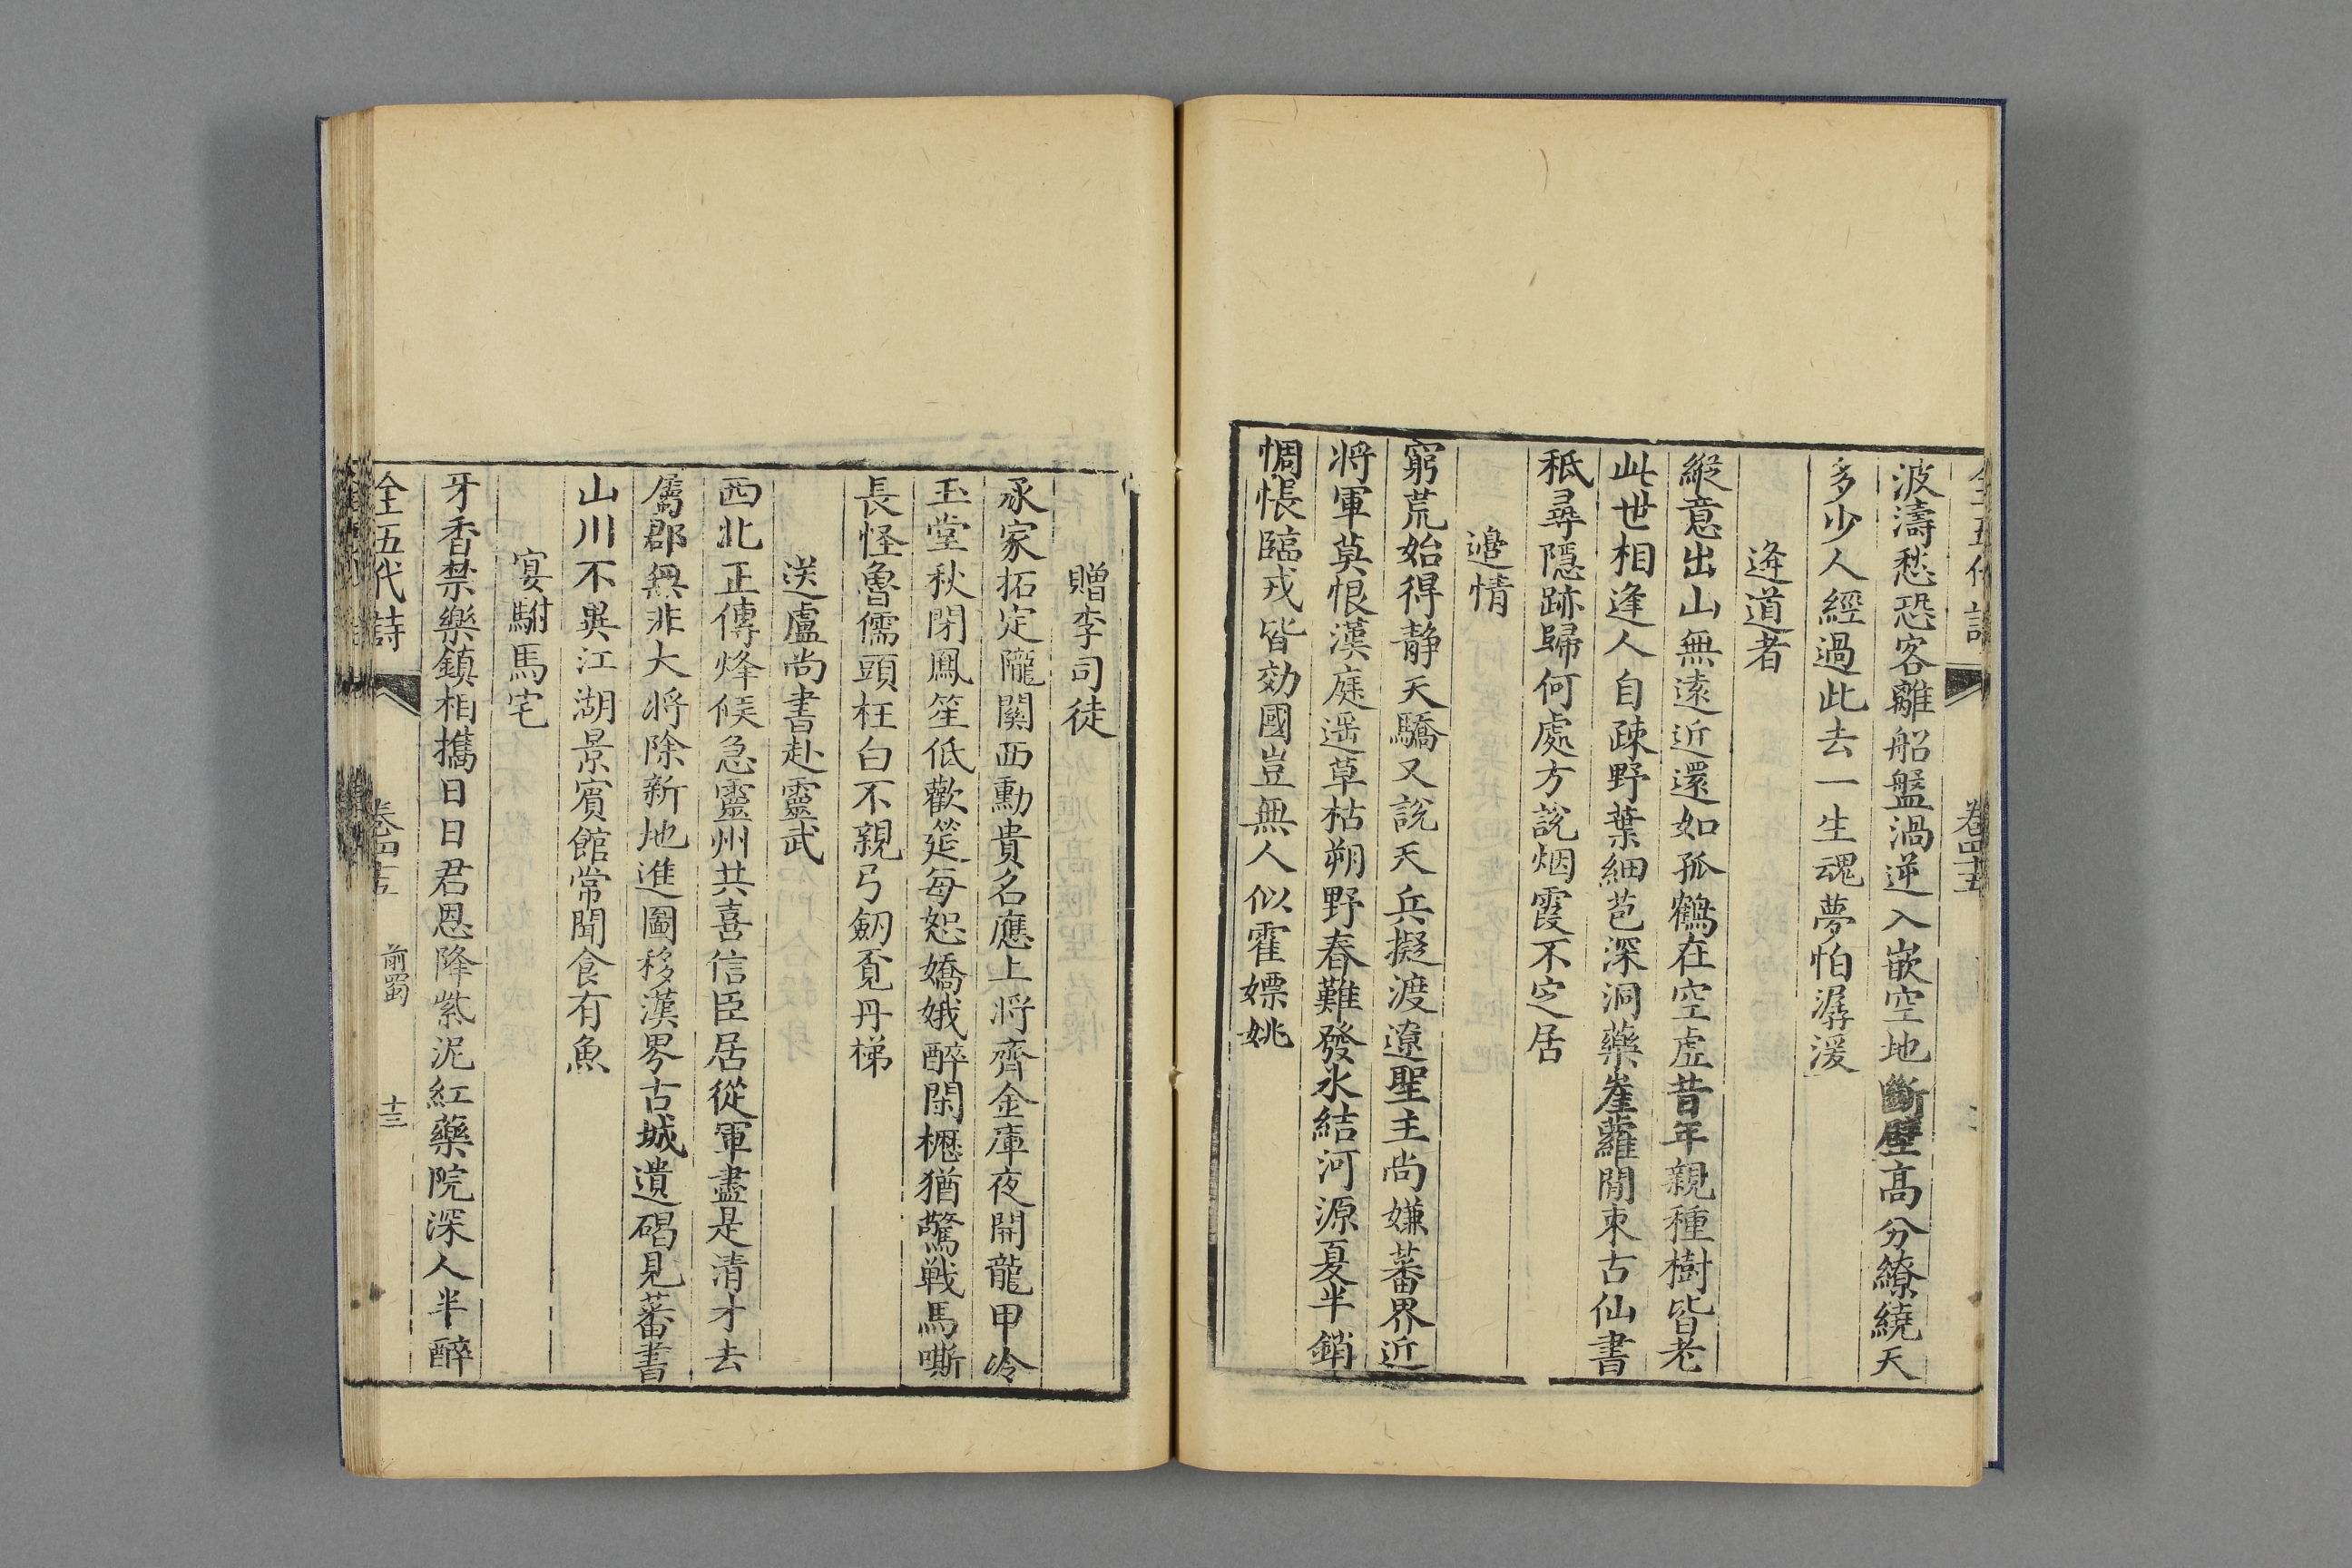 全五代詩 卷四十五
波濤愁恐客離船盤渦逆入嵌空地斷壁高分繚繞天
多少人經過此去一生魂夢怕潺湲
逢道者
縱意出山無遠近還如孤鶴在空虛昔年親種樹皆老
此世相逢人自疎野葉細苞深洞藥崖蘿閒束古仙書
秪尋隱跡歸何處方說烟霞不定居
邉情
窮荒始得静天驕又說天兵擬渡遼聖主尚嫌蕃界近
將軍莫恨漢庭遥草枯朔野春難發氷結河源夏半銷
惆悵臨戎皆効國豈無人似霍嫖姚
贈李司徒
承家拓定隴關西勳貴名應上將齊金庫夜開龍甲冷
玉堂秋閉鳳笙低歡筵每恕嬌娥醉閑櫪猶驚戰馬嘶
長怪魯儒頭枉白不親弓劒覓丹梯
送盧尚書赴靈武
西北正傳烽候急靈州共喜信臣居從軍盡是清才去
屬郡無非大將除新地進圖移漢界古城遺碣見蕃書
山川不異江湖景賓館常聞食有魚
宴駙馬宅
牙香禁樂鎮相攜日日君恩降紫泥紅藥院深人半醉
全五代詩 卷四十五 前蜀 十三